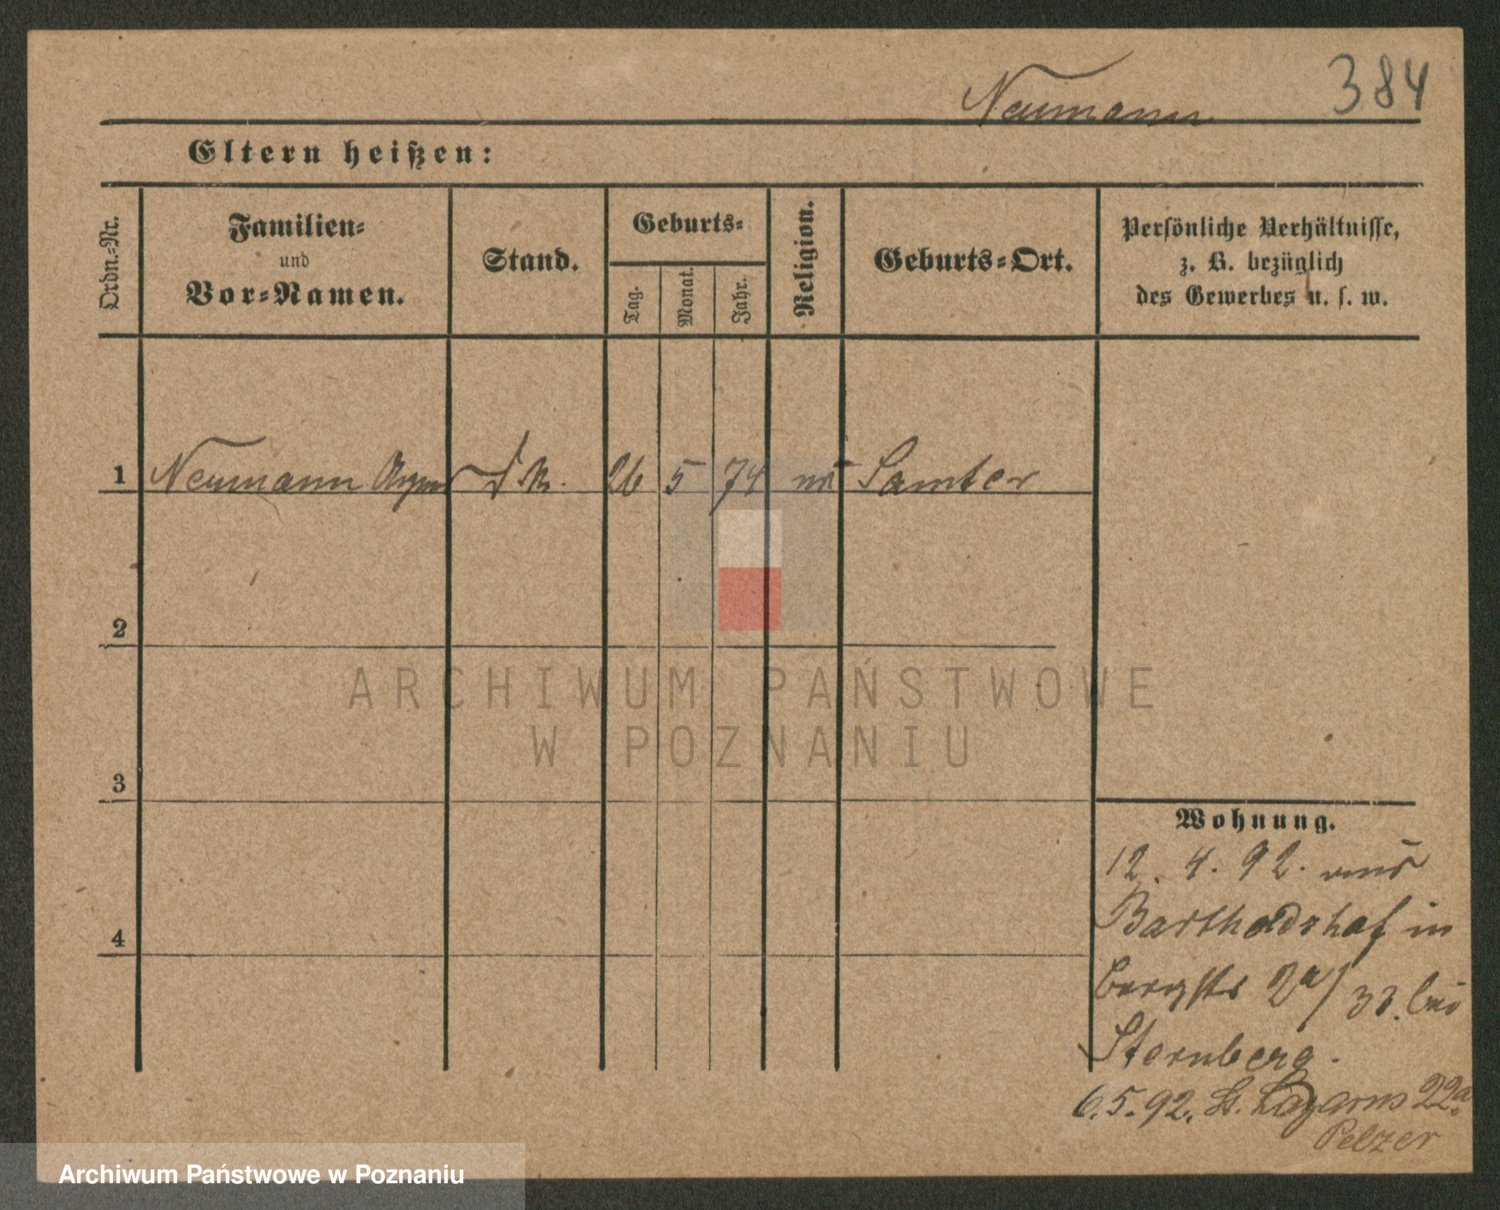 Neumann 384
Eltern heißen:
Ordn.-Nr.
Familien-
und
Vor-Namen.
Stand.
Geburts-
Tag.
Monat.
Jahr.
Religion.
Geburts-Ort.
Persönliche Verhältnisse,
z. B. bezüglich
des Gewerbes u. s. w.
1 Neumann 26 5 74 Samter
2
3
4
ARCHIWUM PAŃSTWOWE
W POZNANIU
Wohnung.
12. 4. 92. aus
Bartholdshof in
Bergstr 2a/ bei
Sternberg.
6.5.92. St. Lazarus 22a.
Pelzer
Archiwum Państwowe w Poznaniu